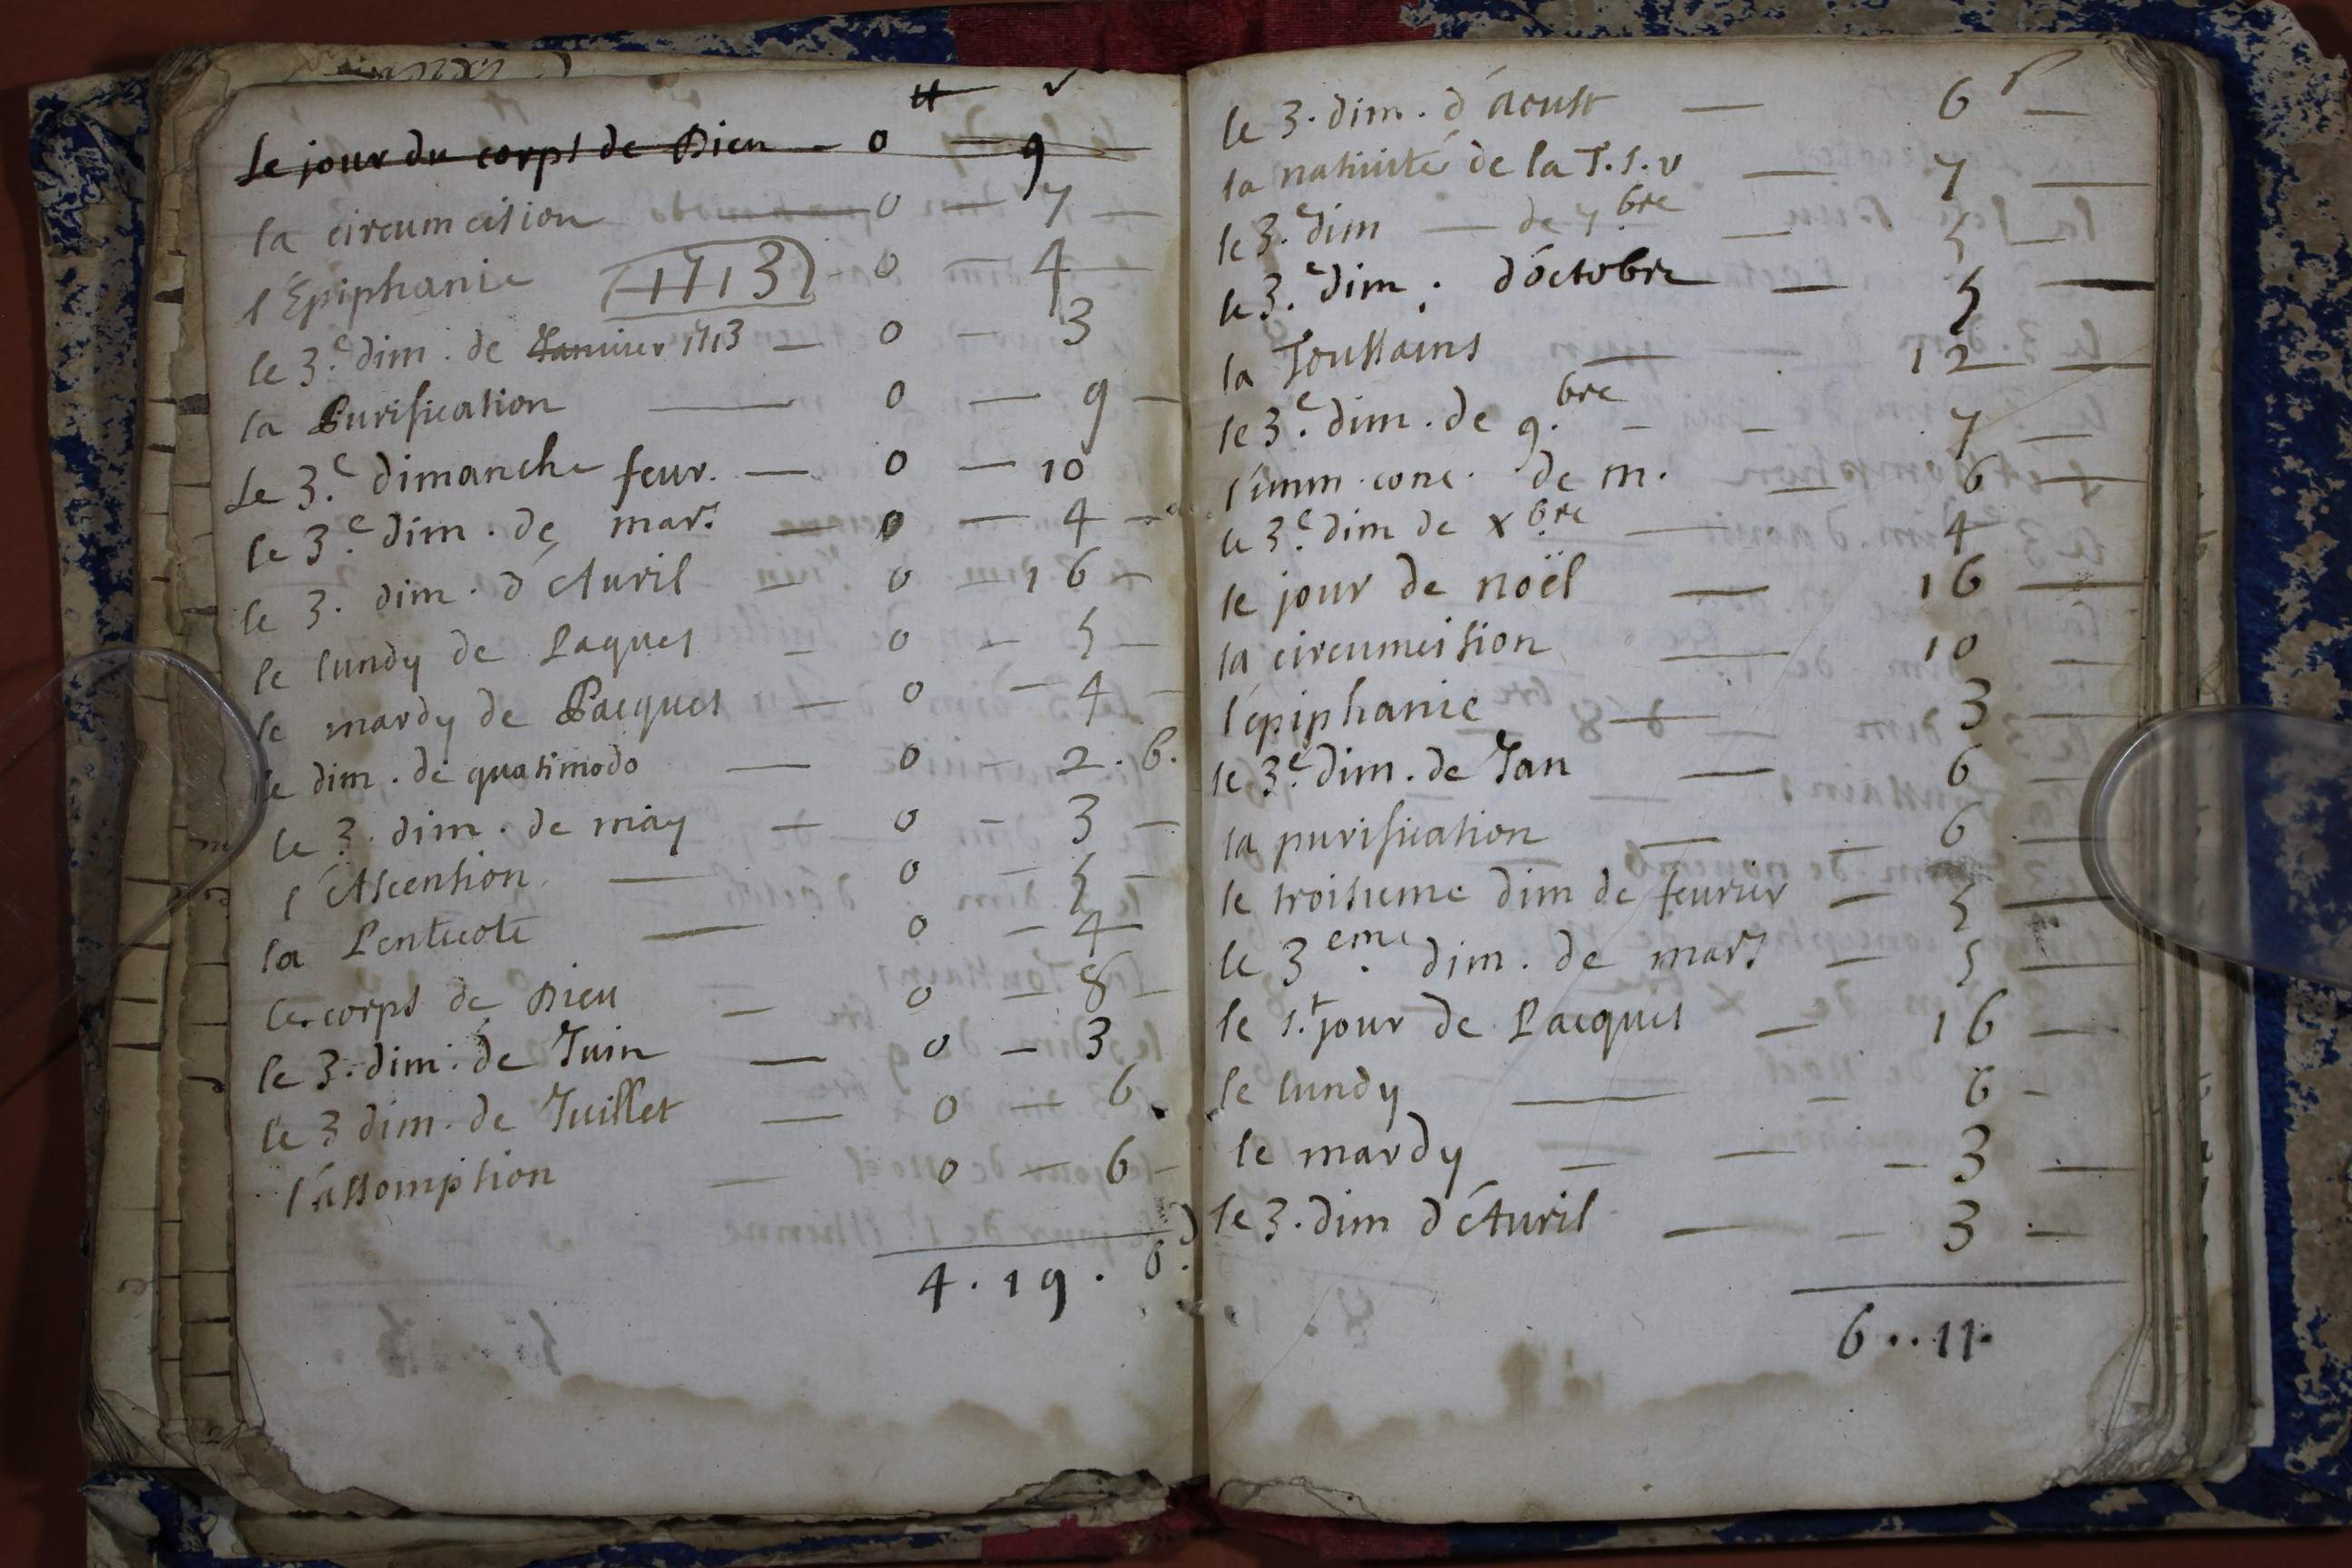 tt s
Le jour du corps de Dieu - 0 - 9
la circumcision 0 - 7 -
l'Epiphanie 1713 0 - 4
le 3.e dim. de Januier 1713 - 0 - 3
la Purification - 0 - 9 -
Le 3.e dimanche feur. - 0 - 10
le 3.e dim. de mars - 0 - 4 -
le 3. dim. d'Auril - 0 - 16 -
le lundy de Paques - 0 - 5 -
le mardy de Pacques - 0 - 4 -
le dim. de quasimodo - 0 - 2.6.
le 3. dim. de may - 0 - 3 -
l'Ascension - 0 - 5 -
la Pentecote - 0 - 4
le corps de Dieu - 0 - 8 -
le 3. dim. de Juin - 0 - 3
le 3 dim. de Juillet - 0 - 6
l'assomption - 0 - 6 -
4.19.6.
le 3. dim. d'aoust - 6 s -
la natiuité de la T.S.V - 7 -
le 3.e dim - de 7.bre - 5 -
le 3.e dim. d'octobre - 5 -
la Toussains - 12 -
le 3.e dim. de 9.bre - - 7 -
l'imm. conc. de m. - 6 -
le 3.e dim de xbre - 4
le jour de noël - 16 -
la circumcision - 10 -
l'épiphanie - 3 -
le 3.e dim. de Jan - 6 -
la purification - - 6 -
le troisieme dim de feurier - 5 -
le 3eme. dim. de mars - 5 -
le 1.r jour de Pacques - 16 -
le lundy - - 6 -
le mardy - - - 3 -
le 3. dim d'Auril - - 3 -
6..11.